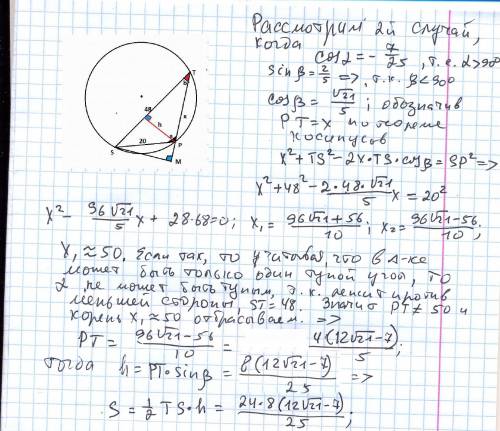 Рассмотрим 2й случай,
когда cosα = -7/25, т.е. α>90°
sinβ = 2/5 => , т.к. β<90°
cosβ = √21/5 ; обозначив
PT=x по теореме
косинусов
x²+TS²-2x·TS·cosβ=SP² =>
x²+48²- 2·48·√21/5 x = 20²
T
b
48
h
x
a
20
P
S
M
x² - 96√21/5 x + 28·68=0; x₁ = 96√21+56/10 ; x₂ = 96√21-56/10 ;
x₁ ≈ 50. Если так, то учитывая, что в Δ-ке
может быть только один тупой угол, то
α не может быть тупым, т.к. лежит против
меньшей стороны, ST=48. Значит PT≠50 и
корень x₁≈50 отбрасываем. =>
PT = 96√21-56/10 = 4(12√21-7)/5 ;
тогда h = PT·sinβ = 8(12√21-7)/25 =>
S = 1/2 TS·h = 24·8(12√21-7)/25 ;